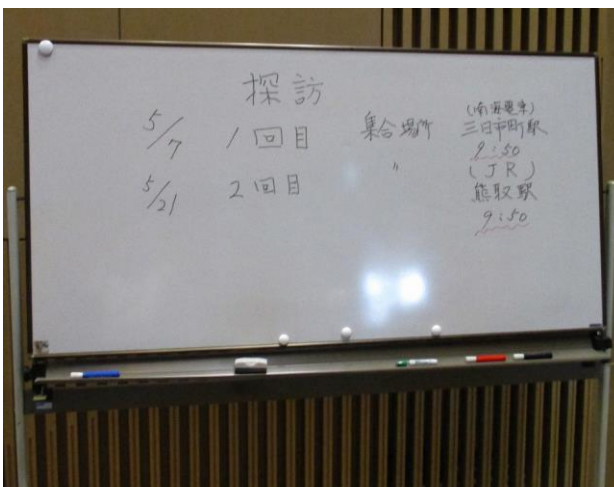 探訪
5/7 1回目 集合場所 (南海電車)
三日市町駅
9:50
5/21 2回目 〃 (JR)
熊取駅
9:50